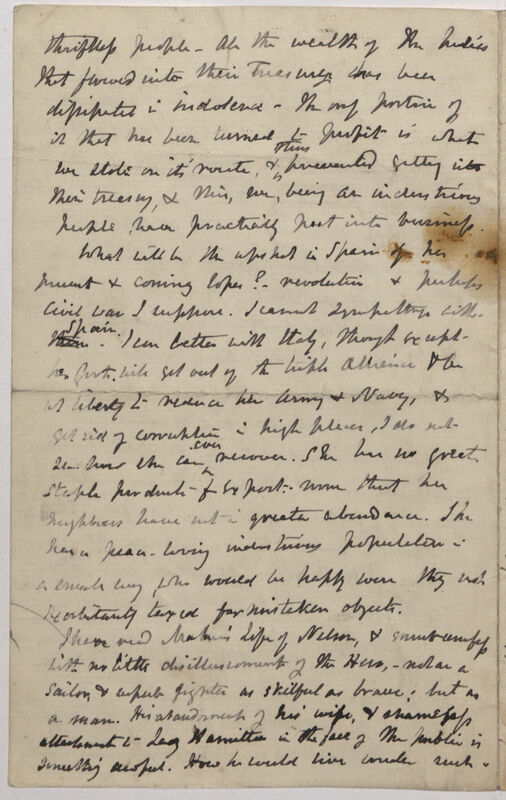 thriftless people - All the wealth of the Indies
that flowed into their treasury has been
dissipated in indolence - The only portion of
it that has been turned to profit is what
we stole on its route, & thus prevented getting into
their treasury, & this, we, being an industrious
people have practically put into business.
What will be the upshot in Spain of her
present & coming loss? - revolution & perhaps
Civil war I suppose. I cannot sympathise with
Spain. I can better with Italy, though except
her Govt. will get out of the triple Alliance & be
at liberty to reduce her Army & Navy, &
get rid of corruption in high places, I do not
see how she can ever recover. She has no great
staple products for export - none that her
neighbours have not in greater abundance. She
has a peace-loving industrious population in
a small way, who would be happy were they not
exorbitantly taxed for mistaken objects.
I have read Mahan's life of Nelson, & must confess
with no little disillusionment of the Hero, - not as a
Sailor, & superb fighter as skilful as brave; but as
a man. His abandonment of his wife, & shameless
attachment to Lady Hamilton in the face of the public is
something awful. How he could live under such